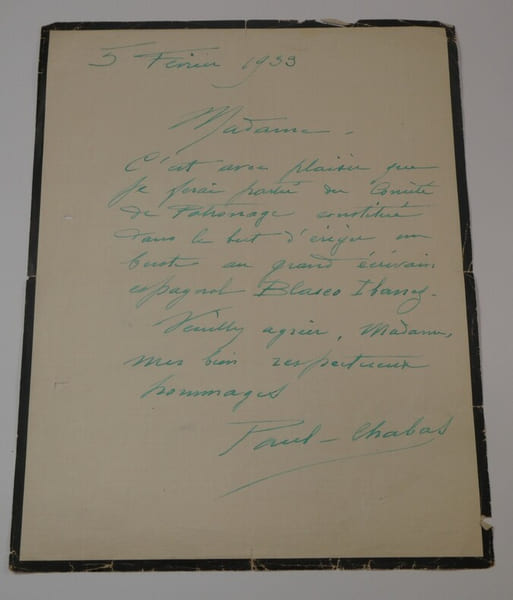 5 Février 1933
Madame -
C'est avec plaisir que
je ferai partie du Comité
de Patronage constitué
dans le but d'ériger un
buste au grand écrivain
espagnol Blasco Ibanez.
Veuillez agréer, Madame,
mes bien respectueux
hommages
Paul-Chabas